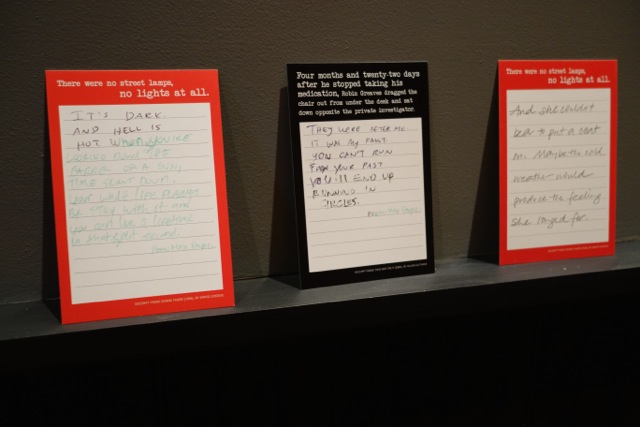 There were no street lamps,
no lights at all.
IT'S DARK.
AND HELL IS
HOT When you're
LOOKING DOWN THE
BARREL OF A GUN,
TIME SLOWS DOWN,
your whole life flashes
be
you can be a
to straight
Four months and twenty-two days
after he stopped taking his
medication, Robin Greaves dragged the
chair out from under the desk and sat
down opposite the private investigator.
THEY WERE AFTER ME.
IT WAS MY FAULT.
YOU CAN'T RUN
FROM YOUR PAST
YOU'LL END UP
RUNNING IN
CIRCLES.
There were no street lamps,
no lights at all.
And she couldn't
bear to put a coat
on. Maybe the cold
weather would
produce the feeling
she longed for.